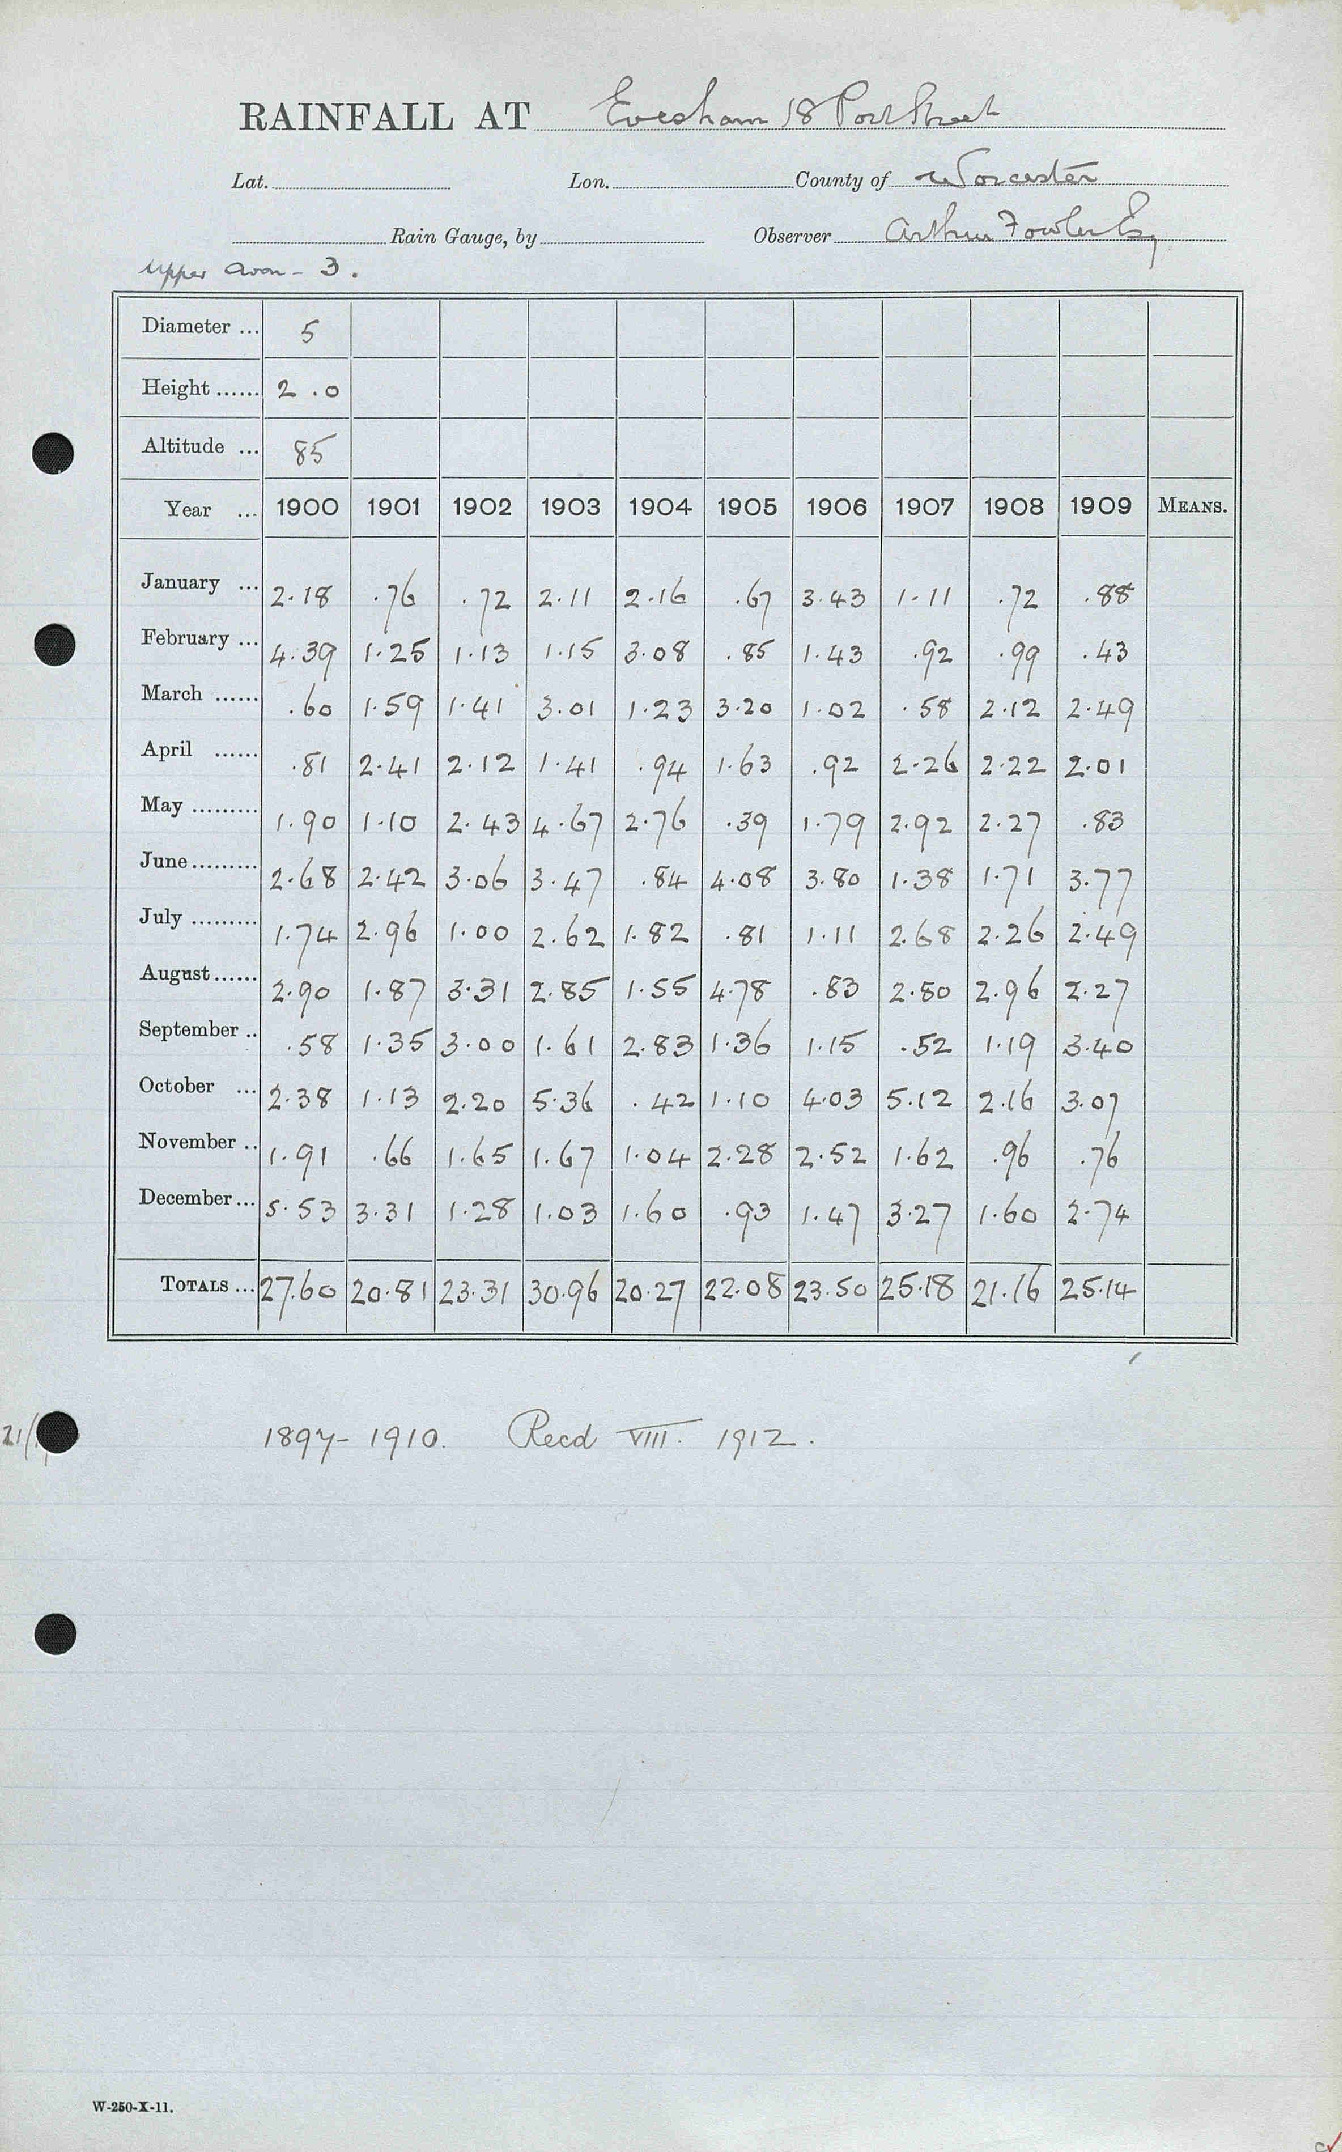 RAINFALL AT Evesham 18 Port Street
Lat. Lon. County of Worcester
Rain Gauge, by Observer Arthur Fowler Esq
Upper Avon - 3.
Diameter ... 5
Height ...... 2.0
Altitude ... 85
Year ... 1900 1901 1902 1903 1904 1905 1906 1907 1908 1909 MEANS.
January ... 2.18 .76 .72 2.11 2.16 .67 3.43 1.11 .72 .88
February ... 4.39 1.25 1.13 1.15 3.08 .85 1.43 .92 .99 .43
March ...... .60 1.59 1.41 3.01 1.23 3.20 1.02 .58 2.12 2.49
April ...... .81 2.41 2.12 1.41 .94 1.63 .92 2.26 2.22 2.01
May ......... 1.90 1.10 2.43 4.67 2.76 .39 1.79 2.92 2.27 .83
June ......... 2.68 2.42 3.06 3.47 .84 4.08 3.80 1.38 1.71 3.77
July ......... 1.74 2.96 1.00 2.62 1.82 .81 1.11 2.68 2.26 2.49
August ...... 2.90 1.87 3.31 2.85 1.55 4.78 .83 2.80 2.96 2.27
September .. .58 1.35 3.00 1.61 2.83 1.36 1.15 .52 1.19 3.40
October ... 2.38 1.13 2.20 5.36 .42 1.10 4.03 5.12 2.16 3.07
November .. 1.91 .66 1.65 1.67 1.04 2.28 2.52 1.62 .96 .76
December ... 5.53 3.31 1.28 1.03 1.60 .93 1.47 3.27 1.60 2.74
TOTALS ... 27.60 20.81 23.31 30.96 20.27 22.08 23.50 25.18 21.16 25.14
1897-1910. Recd VIII. 1912.
W-250-X-11.